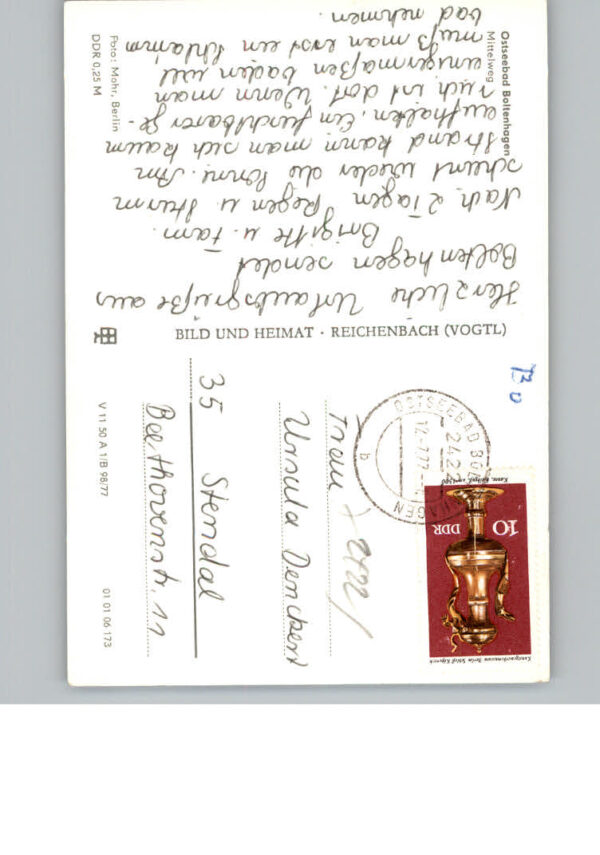 Ostseebad Boltenhagen
Mittelweg
Herzliche Urlaubsgrüße aus
Boltenhagen sendet
Brigitte u. Fam.
Nach 2 Tagen Regen u. Sturm
scheint wieder die Sonne. Am
Strand kann man sich kaum
aufhalten. Ein furchtbarer Ge-
ruch ist dort. Wenn man
einigermaßen baden will
muß man erst ein Schlamm
bad nehmen.
Foto: Mohr, Berlin
DDR 0,25 M
BILD UND HEIMAT · REICHENBACH (VOGTL)
V 11 50 A 1/B 98/77
01 01 06 173
Bo
OSTSEEBAD BOLTENHAGEN
2422
b
10
DDR
Kunstgewerbemuseum Berlin Schloß Köpenick
Kanne, Königsf. um 1500
Frau
Ursula Denckert
35 Stendal
Beethovenstr. 11